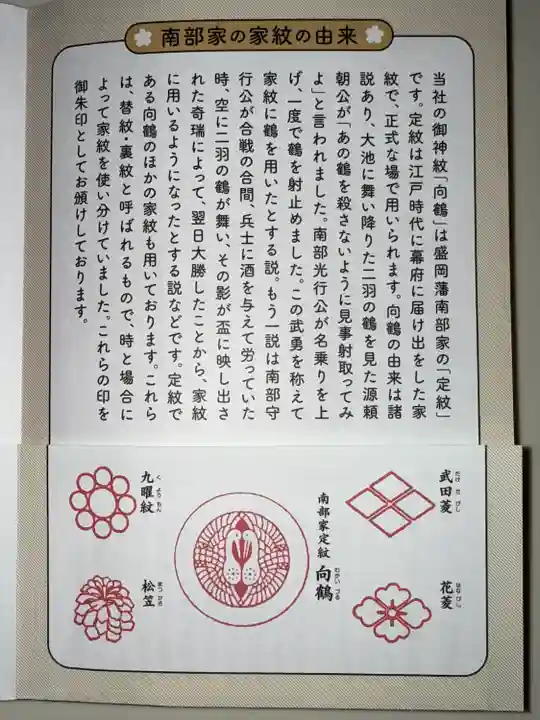 南部家の家紋の由来
当社の御神紋「向鶴」は盛岡藩南部家の「定紋」
です。定紋は江戸時代に幕府に届け出をした家
紋で、正式な場で用いられます。向鶴の由来は諸
説あり、大池に舞い降りた二羽の鶴を見た源頼
朝公が「あの鶴を殺さないように見事射取ってみ
よ」と言われました。南部光行公が名乗りを上
げ、一度で鶴を射止めました。この武勇を称えて
家紋に鶴を用いたとする説。もう一説は南部守
行公が合戦の合間、兵士に酒を与えて労っていた
時、空に二羽の鶴が舞い、その影が盃に映し出さ
れた奇瑞によって、翌日大勝したことから、家紋
に用いるようになったとする説などです。定紋で
ある向鶴のほかの家紋も用いております。これら
は、替紋・裏紋と呼ばれるもので、時と場合に
よって家紋を使い分けていました。これらの印を
御朱印としてお頒けしております。
武田菱
たけだびし
花菱
はなびし
南部家定紋
向鶴
むかいづる
九曜紋
くようもん
松笠
まつかさ